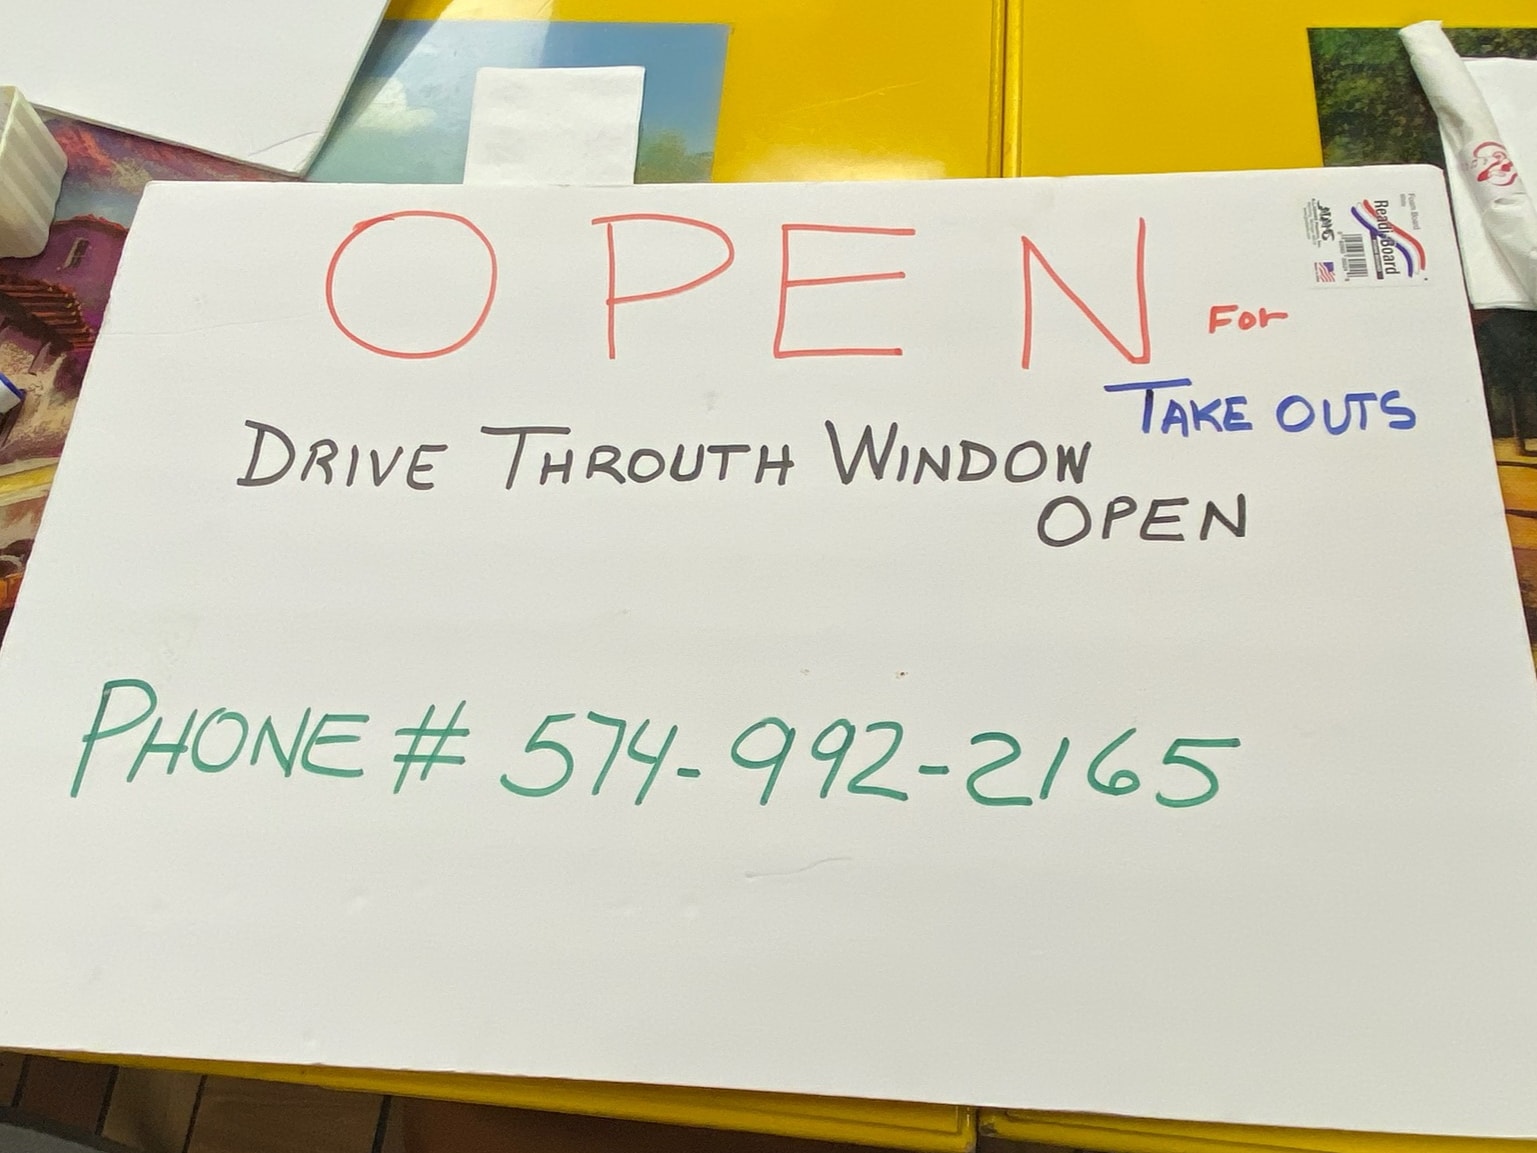 OPEN For
TAKE OUTS
DRIVE THROUTH WINDOW
OPEN
PHONE # 574-992-2165
Foam Board
Readi-Board
ADAMS